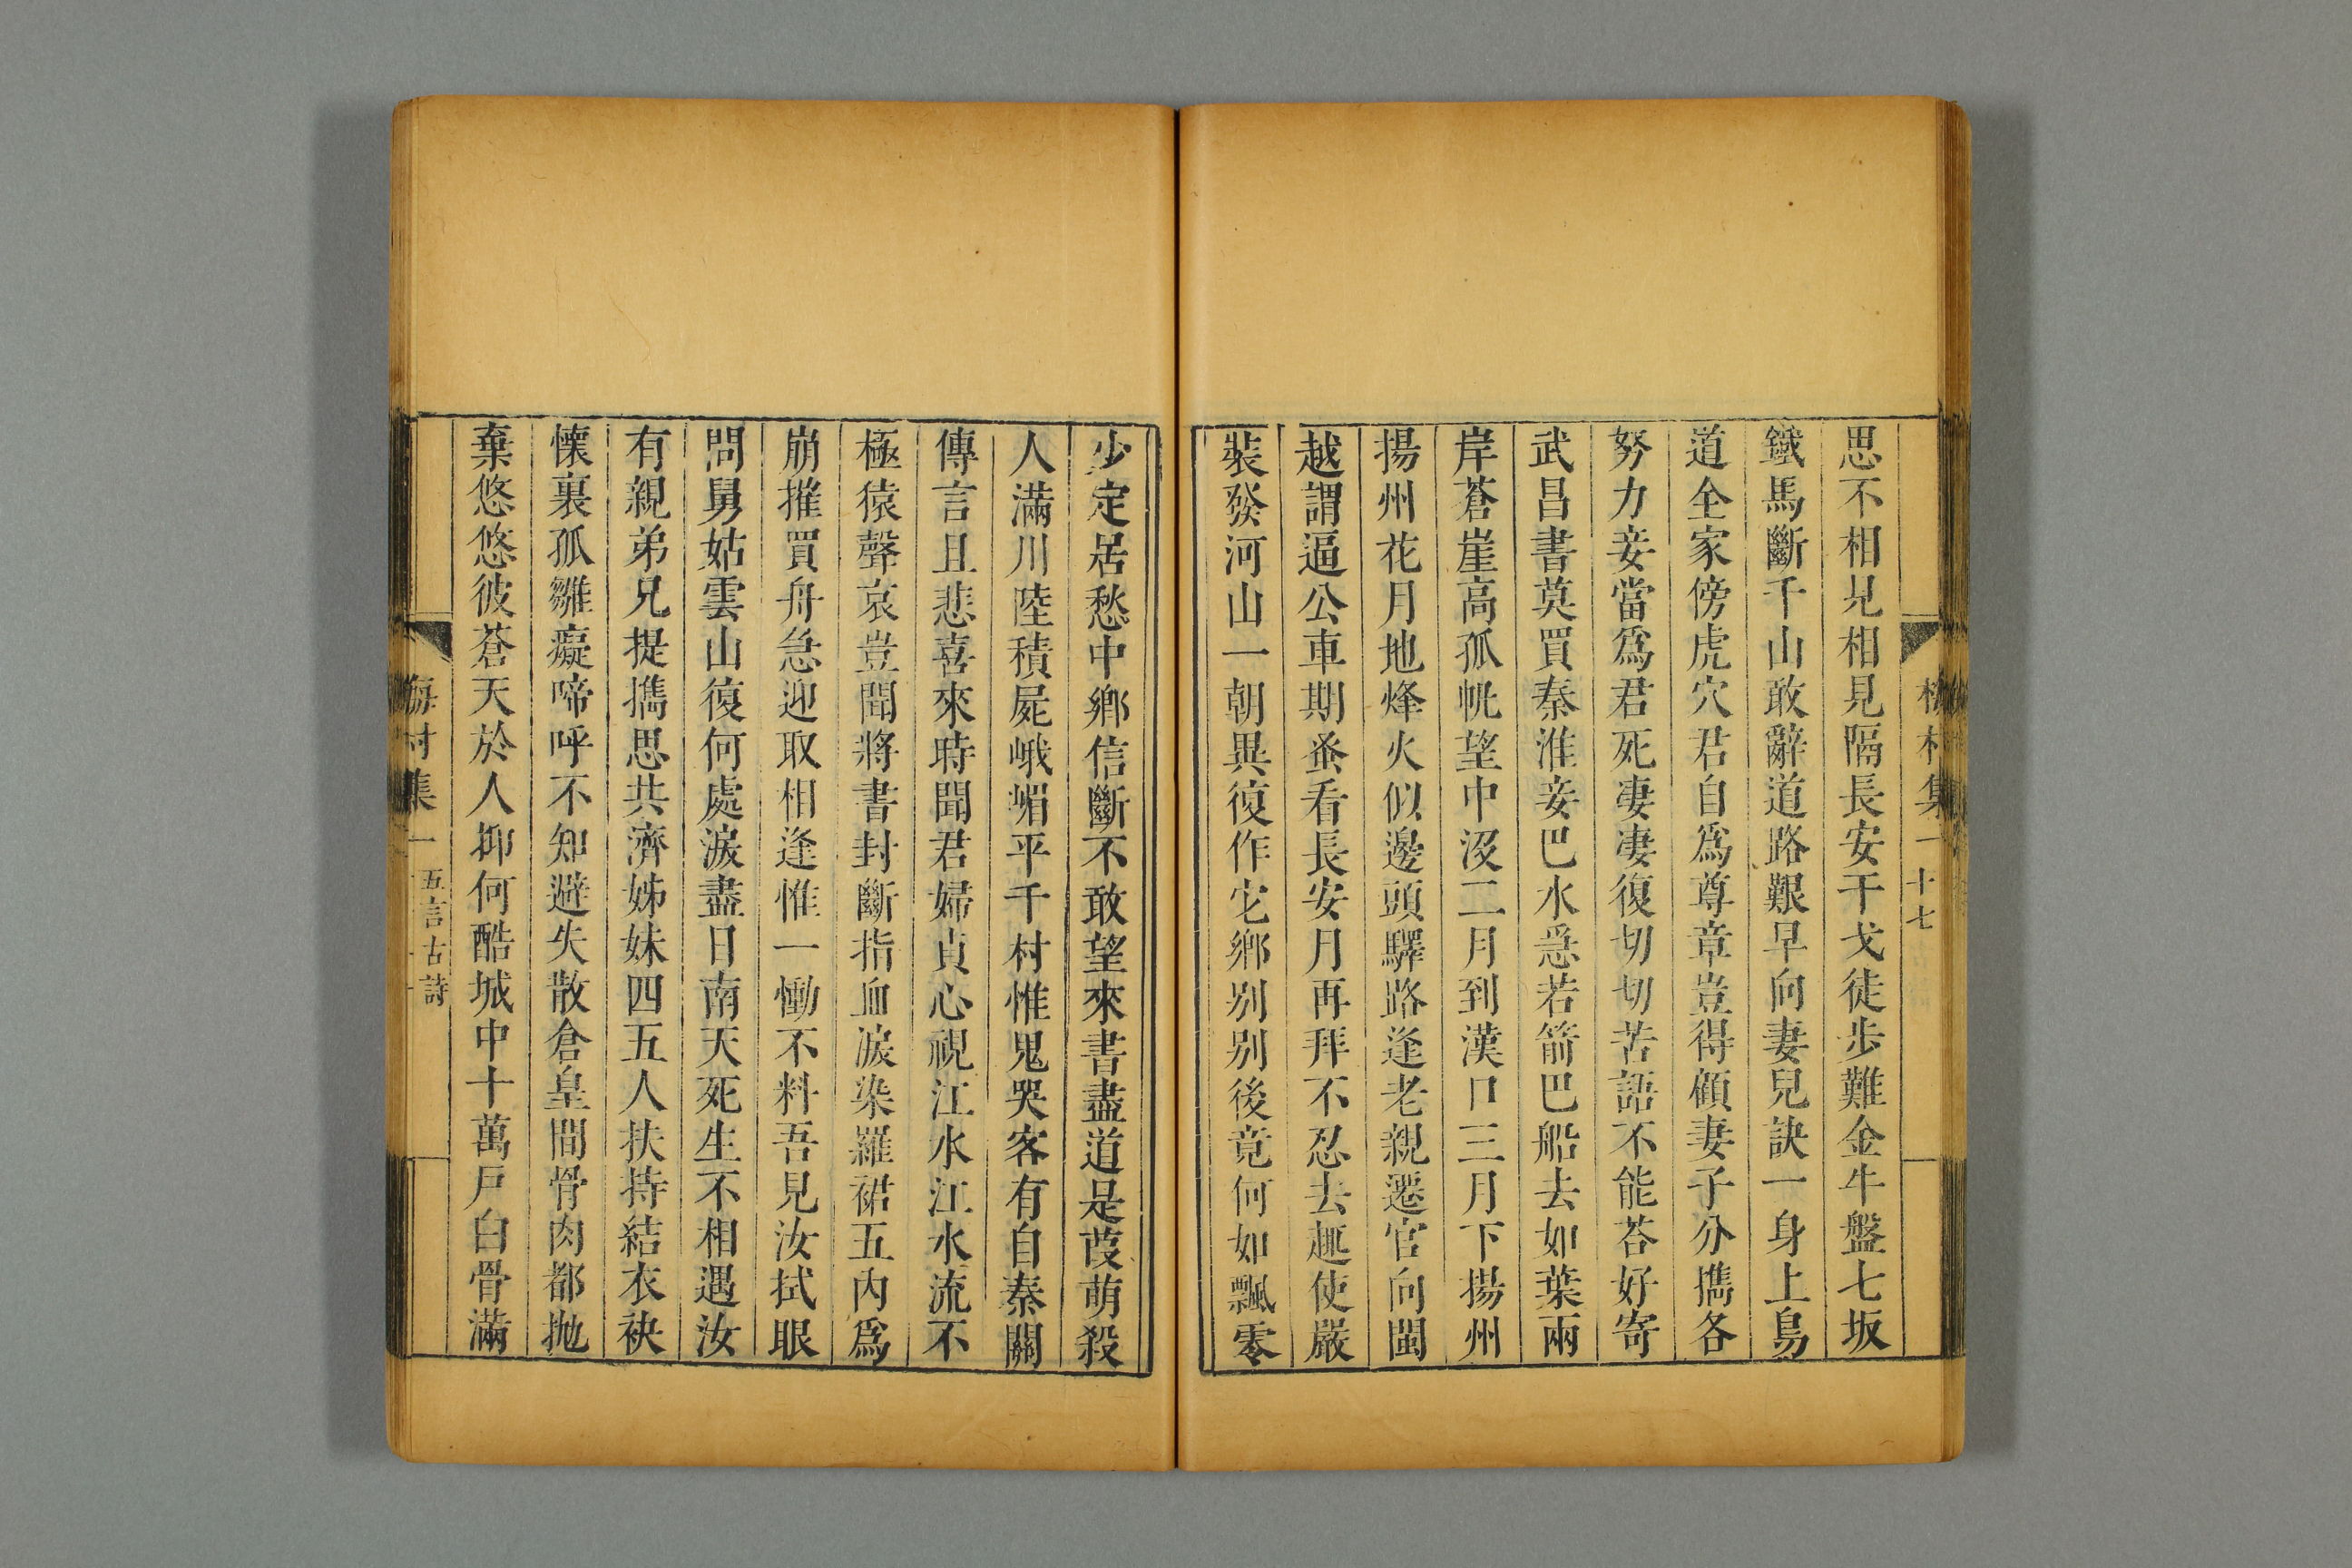 思不相見相見隔長安干戈徒步難金牛盤七坂
鐵馬斷千山敢辭道路艱早向妻兒訣一身上鳥
道全家傍虎穴君自爲尊章豈得顧妻子分攜各
努力妾當爲君死凄凄復切切苦語不能荅好寄
武昌書莫買秦淮妾巴水急若箭巴船去如葉兩
岸蒼崖高孤帆望中沒二月到漢口三月下揚州
揚州花月地烽火似邊頭驛路逢老親遷官向閩
越謂逼公車期蚤看長安月再拜不忍去趣使嚴
裝發河山一朝異復作它鄉别别後竟何如飄零
梅村集一
十七
少定居愁中鄉信斷不敢望來書盡道是葭萌殺
人滿川陸積屍峨嵋平千村惟鬼哭客有自秦關
傳言且悲喜來時聞君婦貞心視江水江水流不
極猿聲哀豈聞將書封斷指血淚染羅裙五內爲
崩摧買舟急迎取相逢惟一慟不料吾見汝拭眼
問舅姑雲山復何處淚盡日南天死生不相遇汝
有親弟兄提攜思共濟姊妹四五人扶持結衣袂
懷裏孤雛癡啼呼不知避失散倉皇間骨肉都抛
棄悠悠彼蒼天於人抑何酷城中十萬戶白骨滿
梅村集一
五言古詩